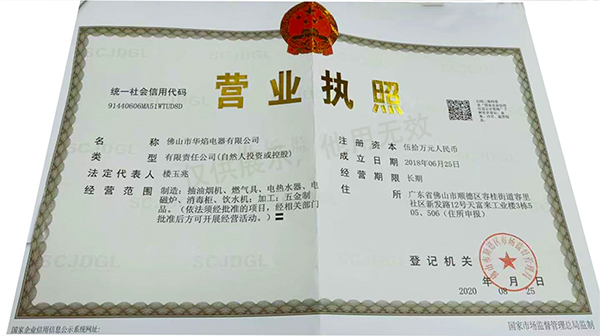 营业执照
统一社会信用代码
91440606MA51WTUD8D
名称 佛山市华焰电器有限公司
类型 有限责任公司(自然人投资或控股)
法定代表人 楼玉兆
经营范围 制造:抽油烟机、燃气具、电热水器、电
磁炉、消毒柜、饮水机;加工:五金制
品。(依法须经批准的项目,经相关部门
批准后方可开展经营活动。)
注册资本 伍拾万元人民币
成立日期 2018年06月25日
经营期限 长期
住所 广东省佛山市顺德区容桂街道容里
社区新发路12号天富来工业楼3栋5
05、506(住所申报)
仅供展示,他用无效
登记机关
2020年08月25日
国家企业信用信息公示系统网址:
国家市场监督管理总局监制